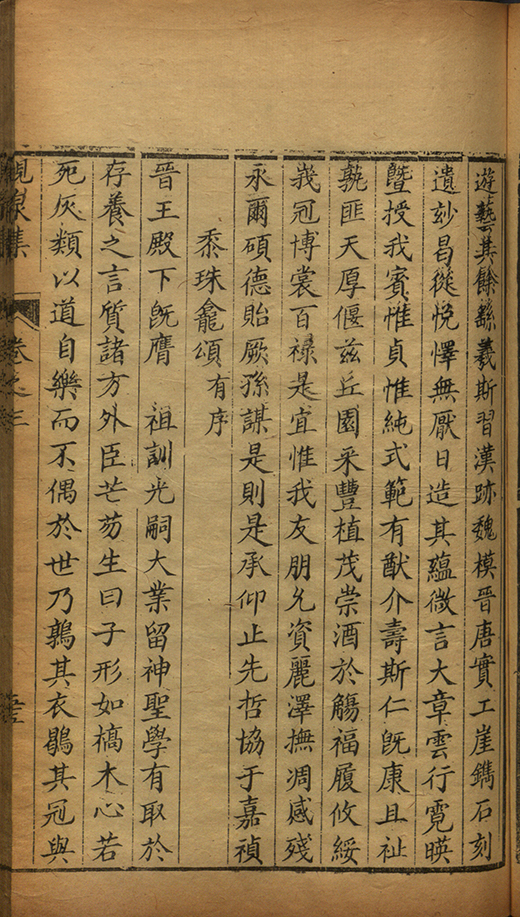 遊藝其餘繇羲斯習漢跡魏模晉唐實工崖鐫石刻
遺妙曷從悅懌無厭日造其蘊微言大章雲行霓暎
暨授我賓惟貞惟純式範有猷介壽斯仁旣康且祉
孰匪天厚偃茲丘園采豐植茂崇酒於觴福履攸綏
峩冠博裳百祿是宜惟我友朋允資麗澤撫凋感殘
永爾碩德貽厥孫謀是則是承仰止先哲協于嘉禎
黍珠龕頌有序
晉王殿下旣膺 祖訓光嗣大業留神聖學有取於
存養之言質諸方外臣芒芴生曰子形如槁木心若
死灰類以道自樂而不偶於世乃鶉其衣鶡其冠與
峴泉集 卷之三